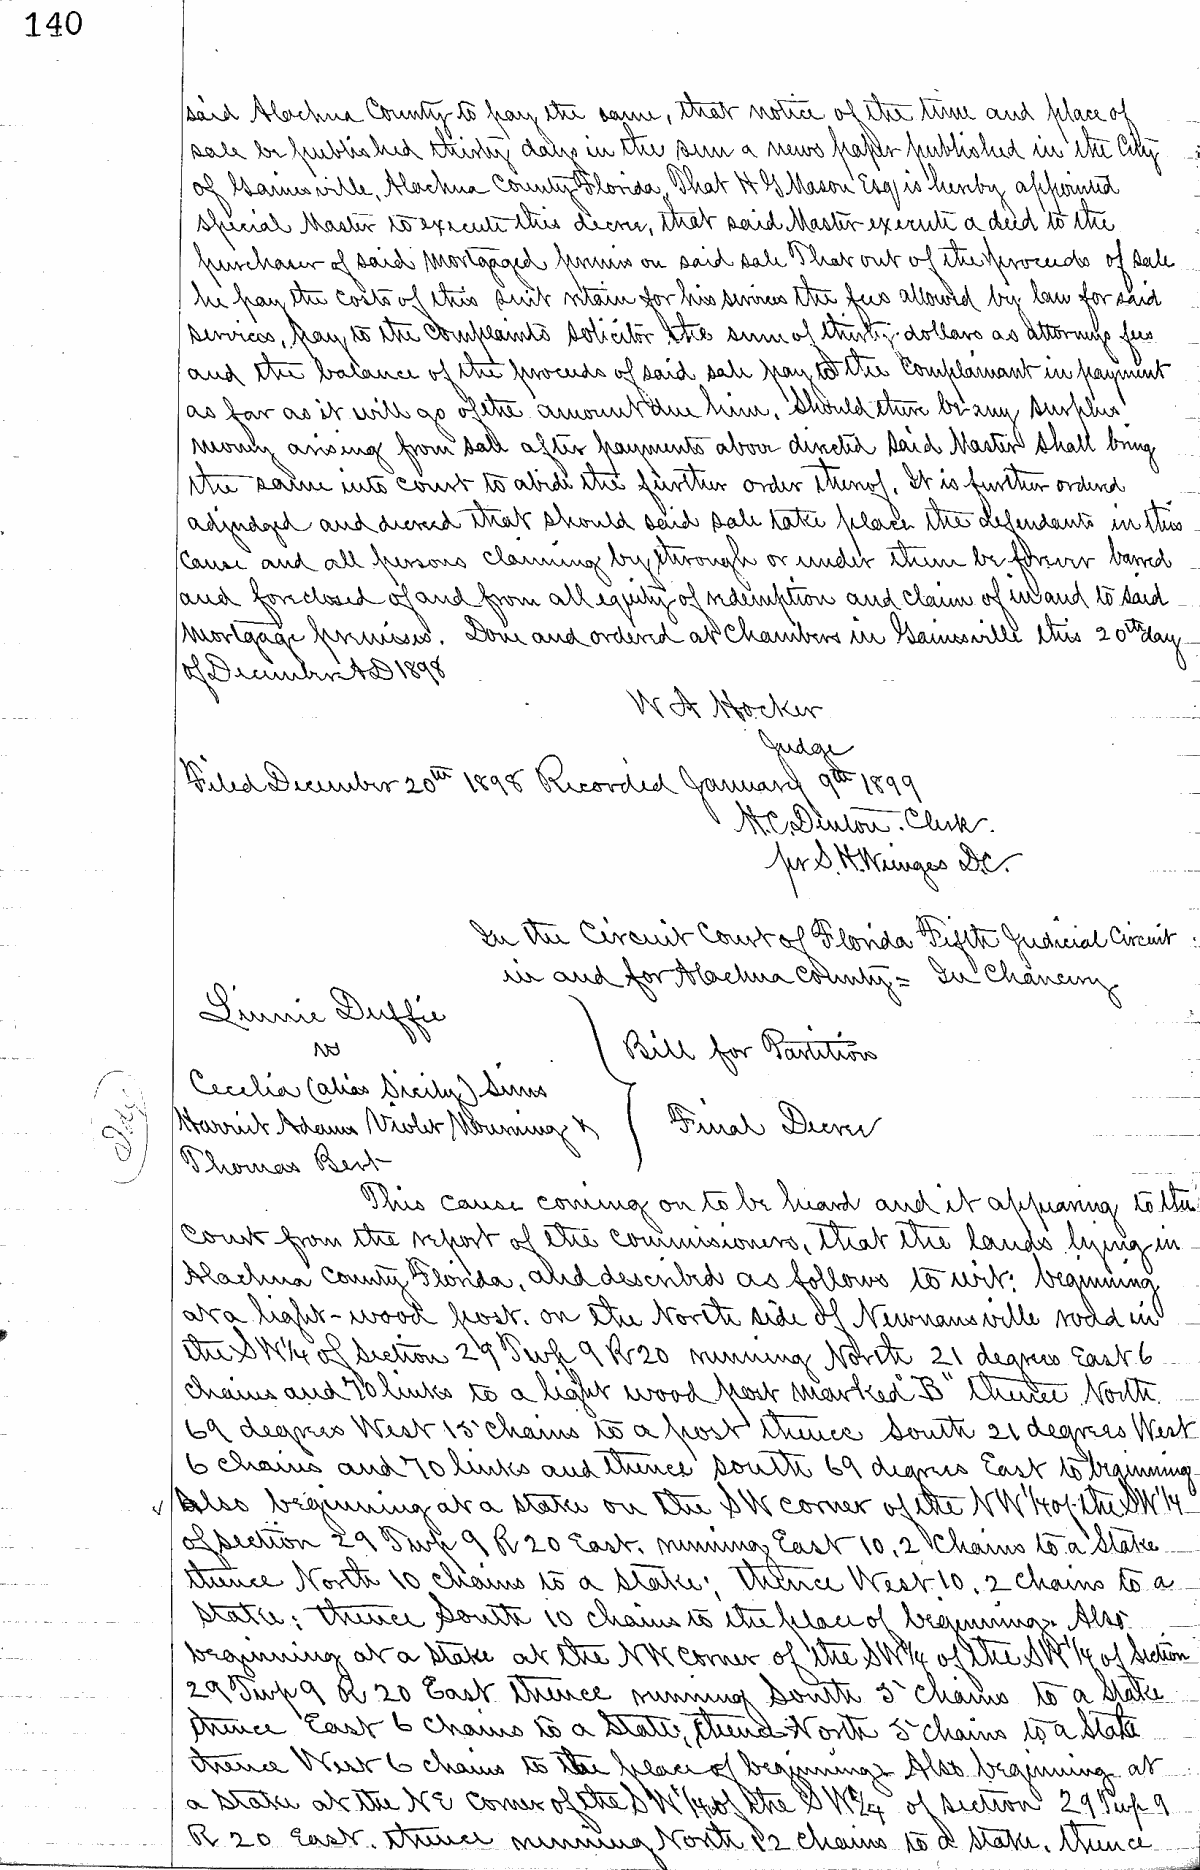 140
said Alachua County to pay the same, that notice of the time and place of
sale be published thirty days in the sun a news paper published in the City
of Gainesville, Alachua County Florida, That H G Mason Esq is hereby appointed
special Master to execute this decree, that said Master execute a deed to the
purchaser of said Mortgaged premises on said sale That out of the proceeds of sale
he pay the costs of this suit retain for his services the fees allowed by law for said
services, pay to the Complaints solicitor the sum of thirty dollars as attorneys fees
and the balance of the proceeds of said sale pay to the Complainant in payment
as far as it will go of the amount due him. Should there be any surplus
money arising from sale after payments above directed said Master shall bring
the same into court to abide the further order thereof. It is further ordered
adjudged and decreed that should said sale take place the defendants in this
cause and all persons claiming by, through or under them be forever barred
and foreclosed of and from all equity of redemption and claim of in and to said
Mortgage premises. Done and ordered at Chambers in Gainesville this 20th day
of December A D 1898
W A Hocker
Judge
Filed December 20th 1898 Recorded January 9th 1899
H. C. Denton. Clerk.
pr S. H. Wienges D.C.
In the Circuit Court of Florida Fifth Judicial Circuit
in and for Alachua County = In Chancery
Linnie Duffie
vs
Bill for Partition
Cecelia (alias Sicily) Sims
Harriet Adams Violet &
Final Decree
Thomas Bert
This cause coming on to be heard and it appearing to the
Court from the report of the commissioners, that the lands lying in
Alachua County Florida, and described as follows to wit: beginning
at a light-wood post. on the North side of Newnansville road in
the SW 1/4 of section 29 Twp 9 R 20 running North 21 degrees East 6
chains and 70 links to a light wood post marked "B" thence North
69 degrees West 15 chains to a post thence South 21 degrees West
6 chains and 70 links and thence south 69 degrees East to beginning
Also beginning at a stake on the SW corner of the NW 1/4 of the SW 1/4
of section 29 Twp 9 R 20 East. running East 10.2 chains to a stake
thence North 10 chains to a stake; thence West 10.2 chains to a
stake; thence South 10 chains to the place of beginning. Also
beginning at a stake at the NW corner of the SW 1/4 of the SW 1/4 of section
29 Twp 9 R 20 East thence running South 5 chains to a stake
thence East 6 chains to a stake, thence North 5 chains to a stake
thence West 6 chains to the place of beginning Also beginning at
a stake at the NE corner of the SW 1/4 of the SW 1/4 of section 29 Twp 9
R 20 East. thence running North 12 chains to a stake. thence